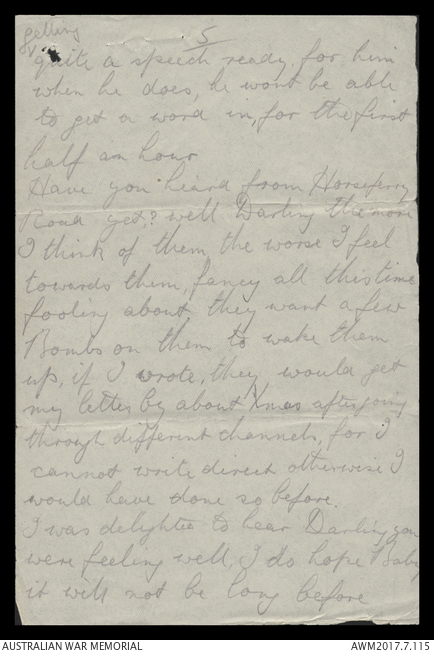 getting
5
quite a speech ready for him
when he does, he wont be able
to get a word in, for the first
half an hour
Have you heard from Horseferry
Road yet? well Darling the more
I think of them the worse I feel
towards them, fancy all this time
fooling about, they want a few
Bombs on them to wake them
up, if I wrote, they would get
my letter by about Xmas after going
through different channels, for I
cannot write direct otherwise I
would have done so before.
I was delighted to hear Darling you
were feeling well, I do hope Baby
it will not be long before
AUSTRALIAN WAR MEMORIAL
AWM2017.7.115